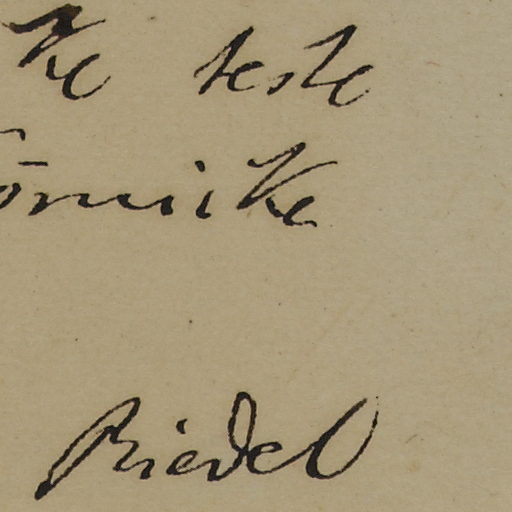 ke teste
örnicke
Riedel